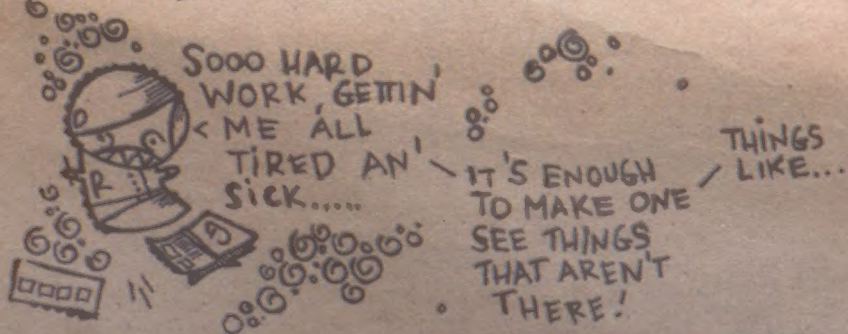 SOOO HARD
WORK, GETTIN'
ME ALL
TIRED AN'
SICK.....
IT'S ENOUGH
TO MAKE ONE
SEE THINGS
THAT AREN'T
THERE!
THINGS
LIKE...
R